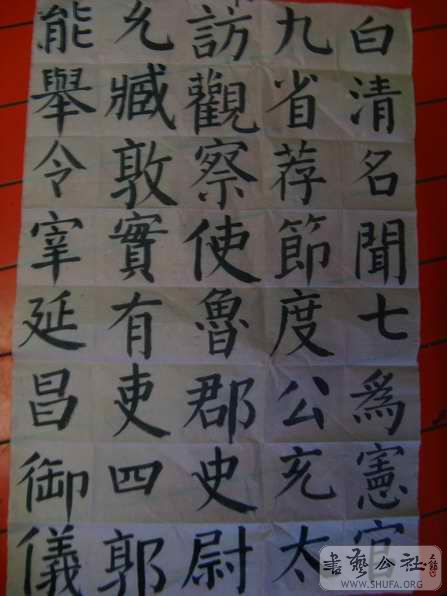 白清名聞七爲憲
九省荐節度公充太
訪觀察使魯郡史尉
允臧敦實有吏四郭
能舉令宰延昌御儀
書藝公社
WWW.SHUFA.ORG